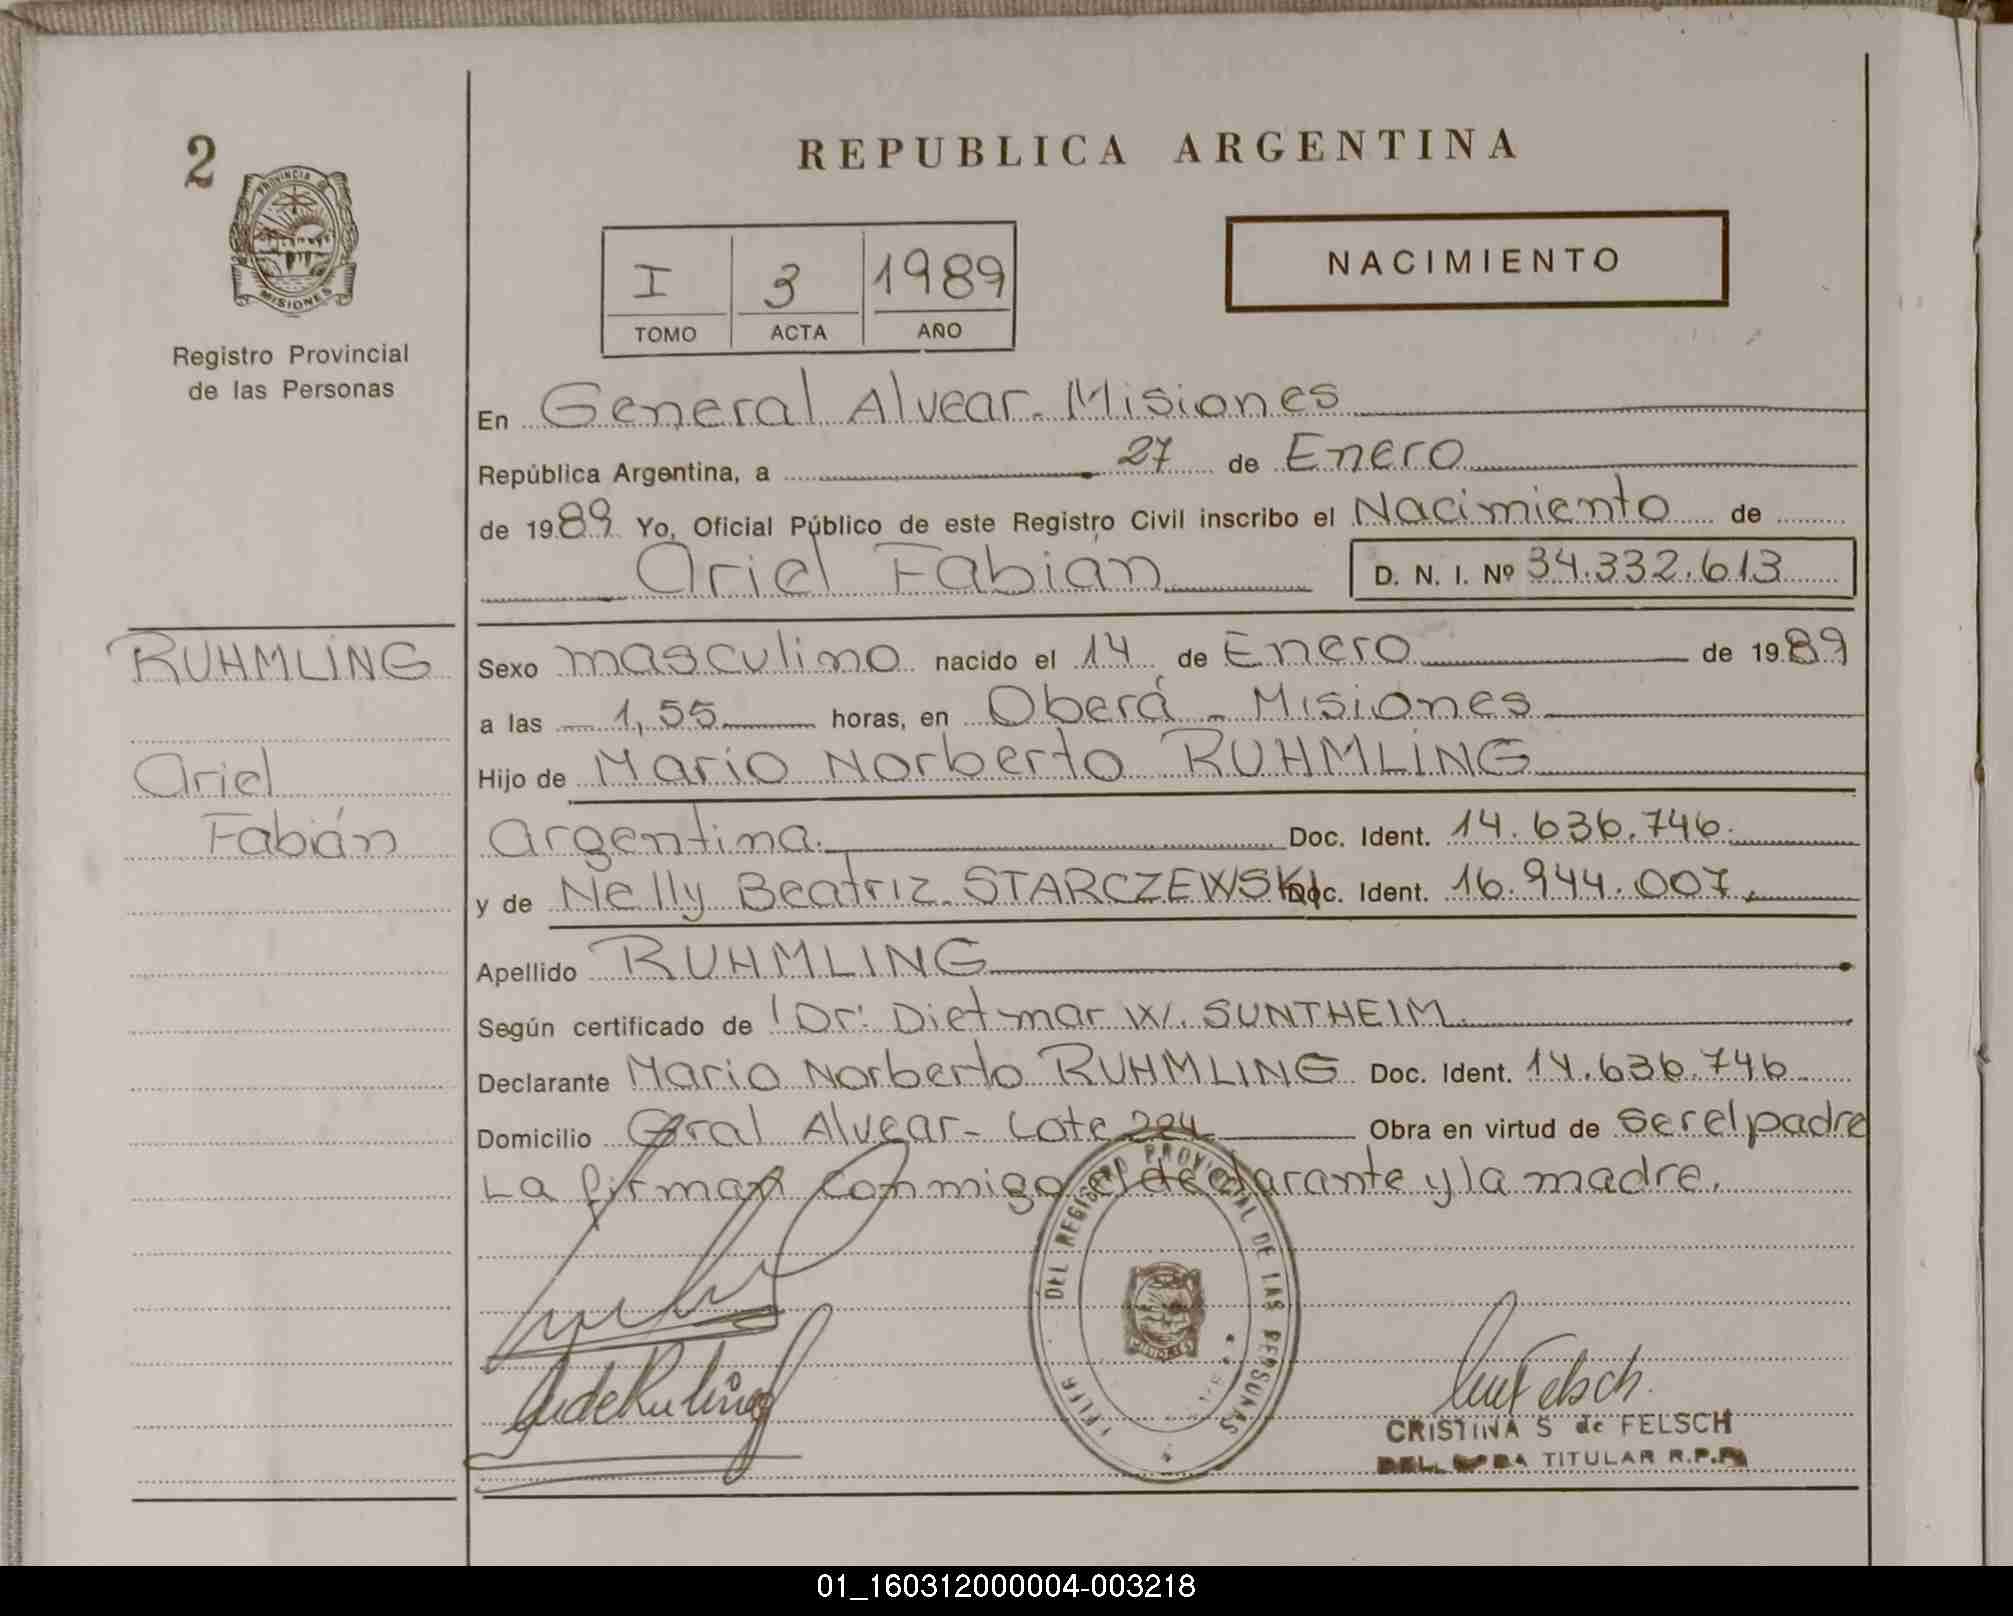 2
PROVINCIA DE
MISIONES
Registro Provincial
de las Personas
REPUBLICA ARGENTINA
I 3 1989
TOMO ACTA AÑO
NACIMIENTO
En General Alvear - Misiones
República Argentina, a 27 de Enero
de 1989 Yo, Oficial Público de este Registro Civil inscribo el Nacimiento de
Ariel Fabian D. N. I. Nº 34.332.613
RUHMLING
Ariel
Fabián
Sexo masculino nacido el 14 de Enero de 1989
a las 1,55 horas, en Oberá - Misiones
Hijo de Mario Norberto RUHMLING
Argentina. Doc. Ident. 14.636.746.
y de Nelly Beatriz STARCZEWSKI Doc. Ident. 16.944.007.
Apellido RUHMLING
Según certificado de Dr. Dietmar W. SUNTHEIM.
Declarante Mario Norberto RUHMLING Doc. Ident. 14.636.746
Domicilio Gral Alvear - Lote 224 Obra en virtud de ser el padre
La firman conmigo el declarante y la madre.
DEL REGISTRO PROVINCIAL DE LAS PERSONAS
CRISTINA S de FELSCH
TITULAR R.P.P.
01_160312000004-003218